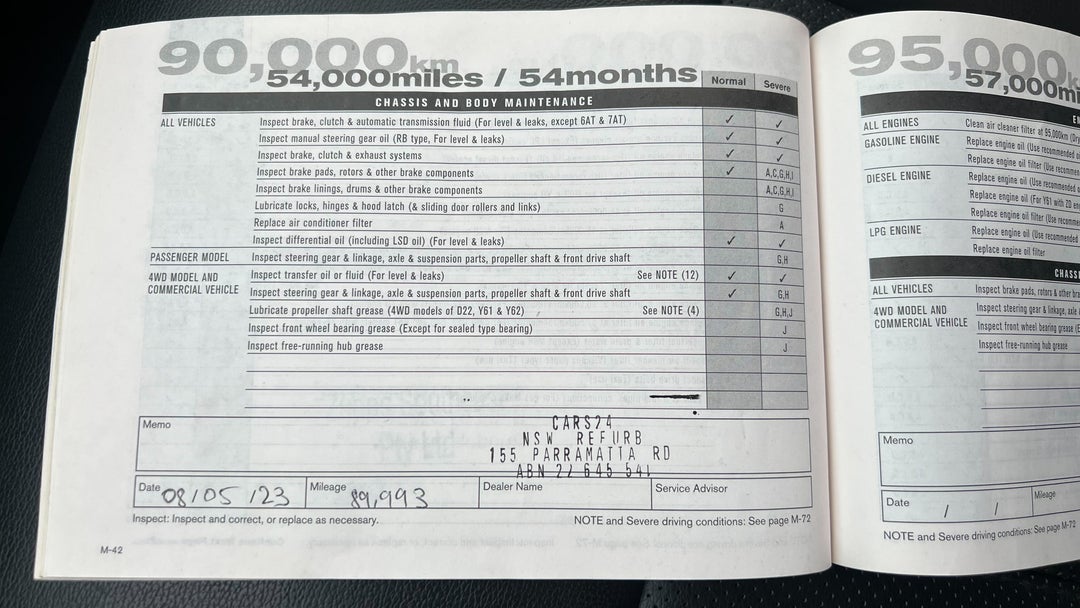 90,000km
54,000miles / 54months
Normal Severe
CHASSIS AND BODY MAINTENANCE
ALL VEHICLES Inspect brake, clutch & automatic transmission fluid (For level & leaks, except 6AT & 7AT) ✓ ✓
Inspect manual steering gear oil (RB type, For level & leaks) ✓ ✓
Inspect brake, clutch & exhaust systems ✓ ✓
Inspect brake pads, rotors & other brake components ✓ A,C,G,H,I
Inspect brake linings, drums & other brake components A,C,G,H,I
Lubricate locks, hinges & hood latch (& sliding door rollers and links) G
Replace air conditioner filter A
Inspect differential oil (including LSD oil) (For level & leaks) ✓ ✓
PASSENGER MODEL Inspect steering gear & linkage, axle & suspension parts, propeller shaft & front drive shaft G,H
4WD MODEL AND Inspect transfer oil or fluid (For level & leaks) See NOTE (12) ✓ ✓
COMMERCIAL VEHICLE Inspect steering gear & linkage, axle & suspension parts, propeller shaft & front drive shaft ✓ G,H
Lubricate propeller shaft grease (4WD models of D22, Y61 & Y62) See NOTE (4) G,H,J
Inspect front wheel bearing grease (Except for sealed type bearing) J
Inspect free-running hub grease J
Memo
CARS24
NSW REFURB
155 PARRAMATTA RD
ABN 27 645 541
Date 08/05/23 Mileage 89,993 Dealer Name Service Advisor
Inspect: Inspect and correct, or replace as necessary. NOTE and Severe driving conditions: See page M-72
M-42
95,000
57,000mi
ALL ENGINES Clean air cleaner filter at 95,000km (Dry
GASOLINE ENGINE Replace engine oil (Use recommended
Replace engine oil filter (Use recommen
DIESEL ENGINE Replace engine oil (Use recommended
Replace engine oil (For Y61 with ZD en
Replace engine oil filter (Use recomme
LPG ENGINE Replace engine oil (Use recommended
Replace engine oil filter
CHASSI
ALL VEHICLES Inspect brake pads, rotors & other bra
4WD MODEL AND Inspect steering gear & linkage, axle
COMMERCIAL VEHICLE Inspect front wheel bearing grease (E
Inspect free-running hub grease
Memo
Date / / Mileage
NOTE and Severe driving conditions: See page M-72